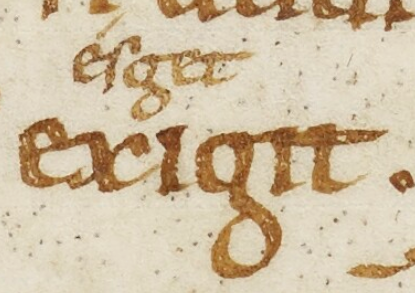 erget
exigit.